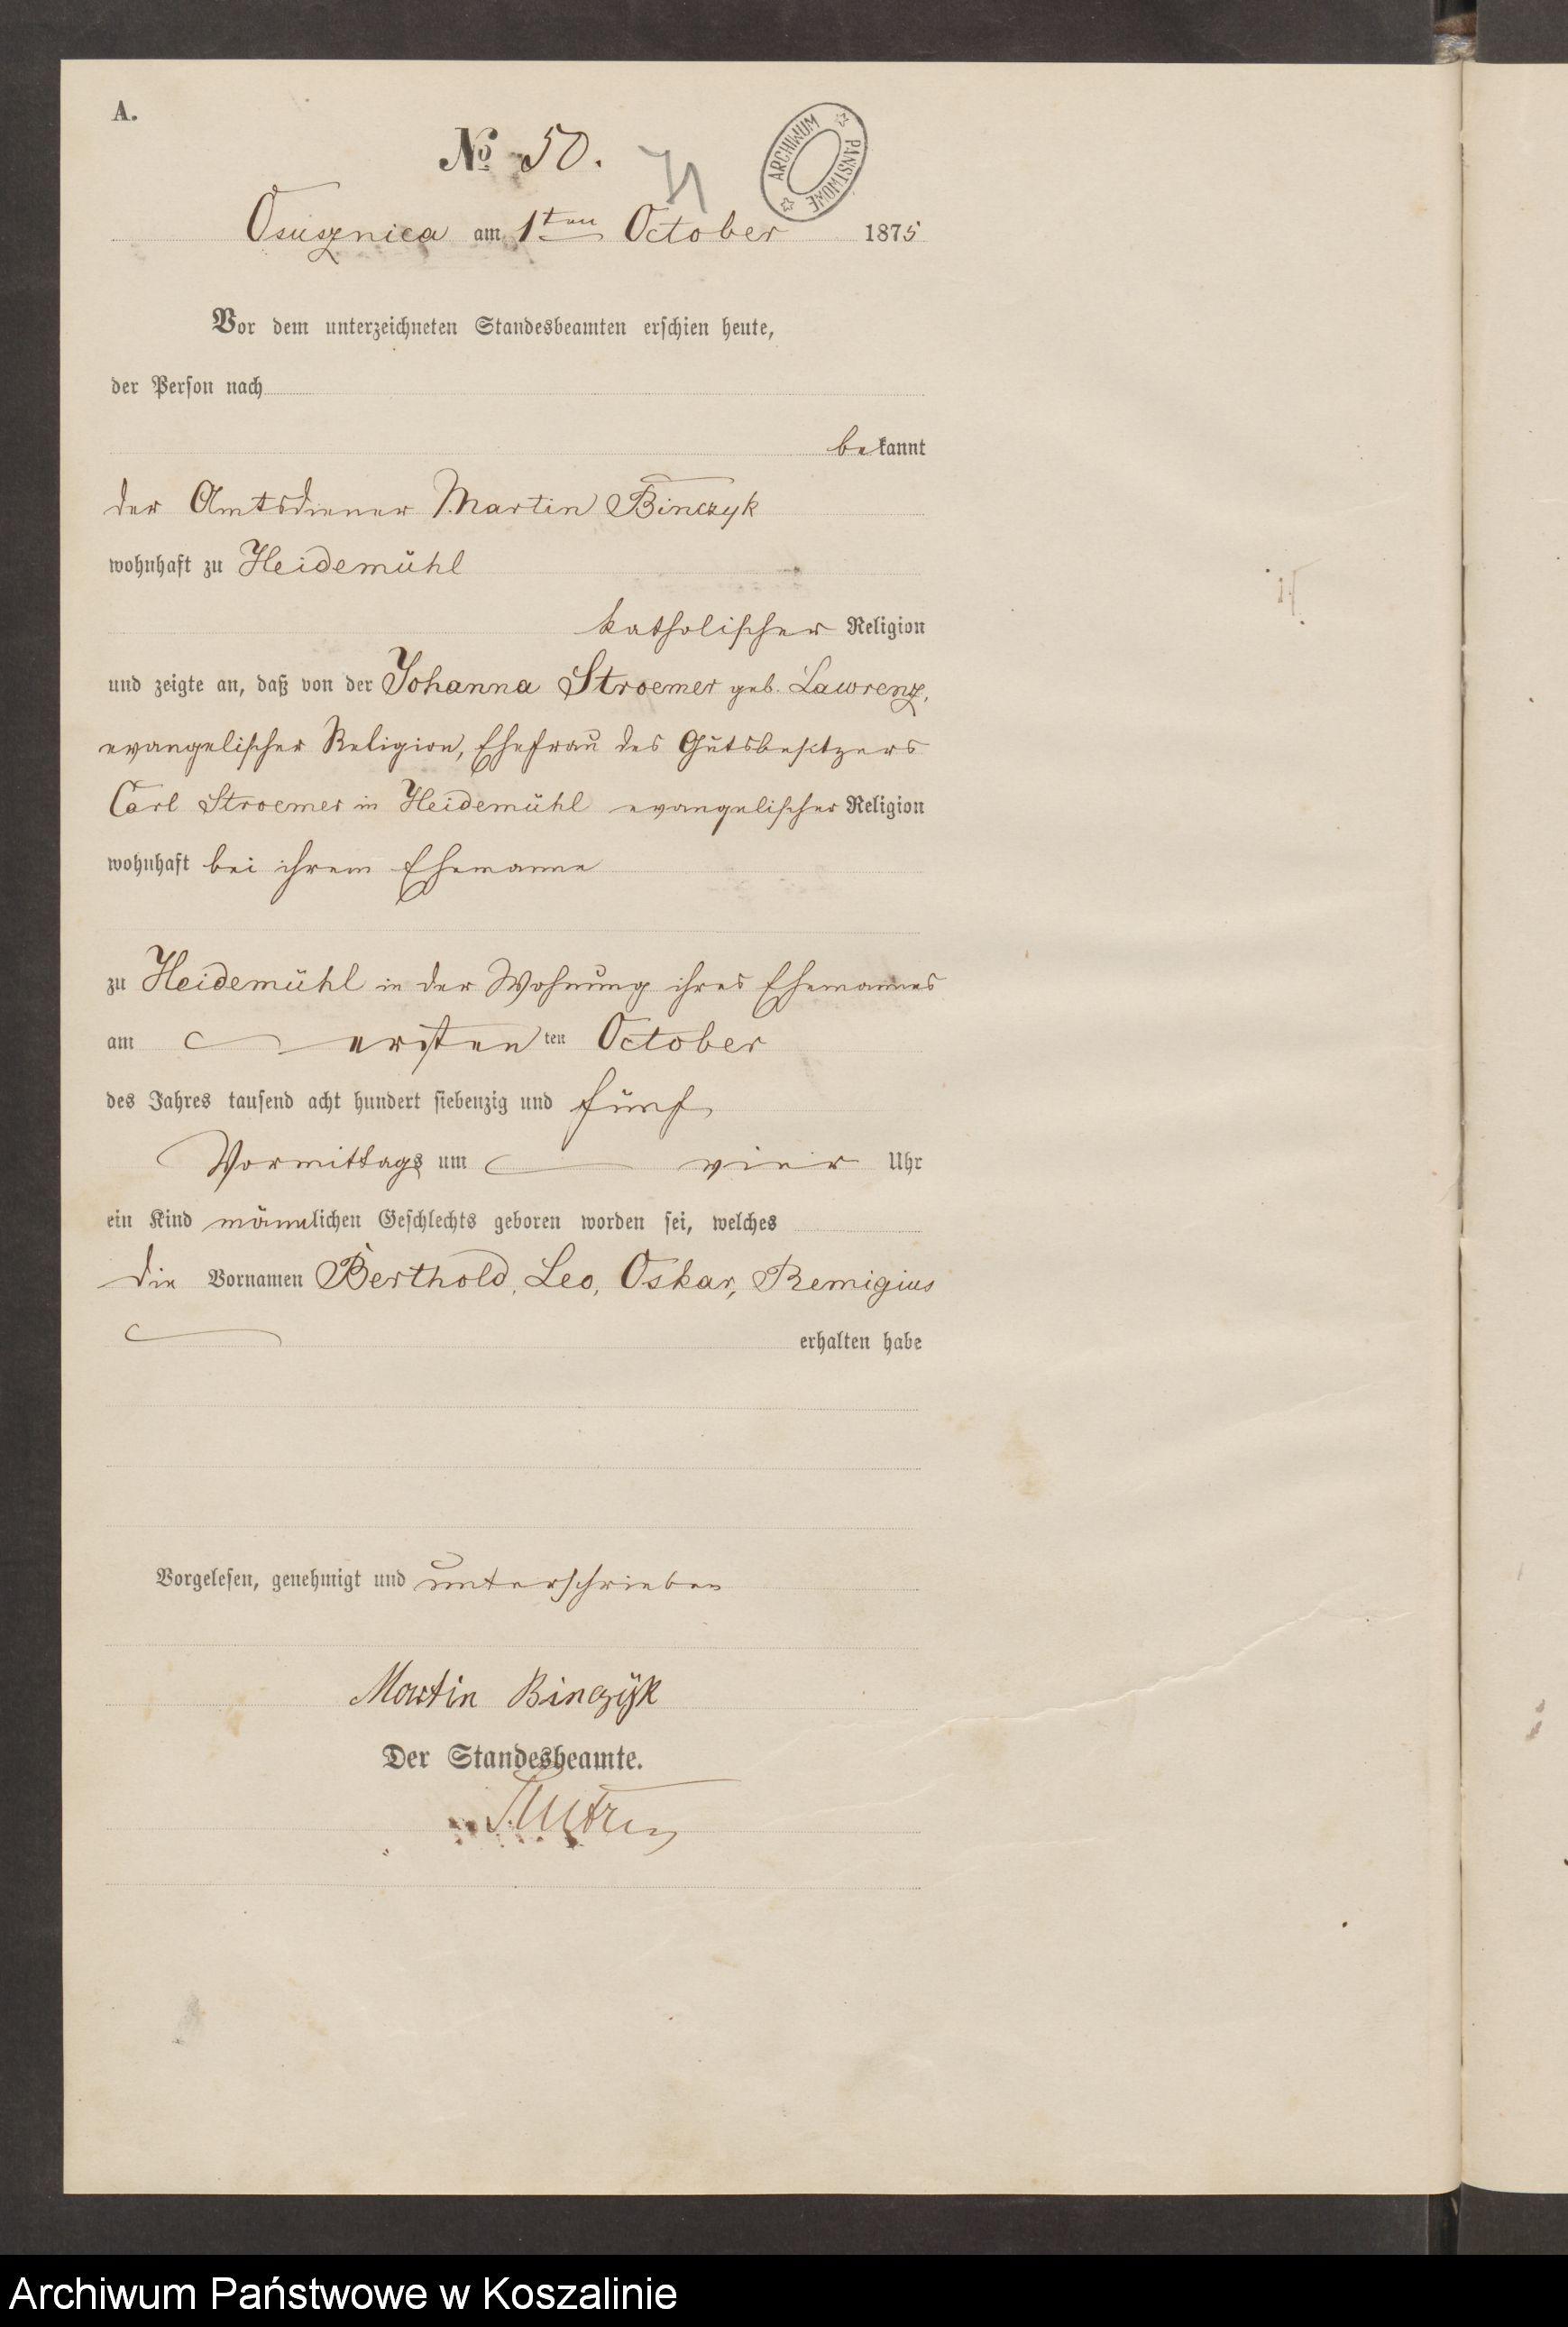 A.
No 50.
ARCHIWUM PAŃSTWOWE
Osusznica am 1ten October 1875
Vor dem unterzeichneten Standesbeamten erschien heute,
der Person nach
bekannt
der Amtsdiener Martin Binczyk
wohnhaft zu Heidemühl
katholischer Religion
und zeigte an, daß von der Johanna Stroemer geb. Lawrenz,
evangelischer Religion, Ehefrau des Gutsbesitzers
Carl Stroemer in Heidemühl evangelischer Religion
wohnhaft bei ihrem Ehemanne
zu Heidemühl in der Wohnung ihres Ehemannes
am ersten ten October
des Jahres tausend acht hundert siebenzig und fünf
Vormittags um vier Uhr
ein Kind männlichen Geschlechts geboren worden sei, welches
die Vornamen Berthold, Leo, Oskar, Remigius
erhalten habe
Vorgelesen, genehmigt und unterschrieben
Martin Binczyk
Der Standesbeamte.
Archiwum Państwowe w Koszalinie